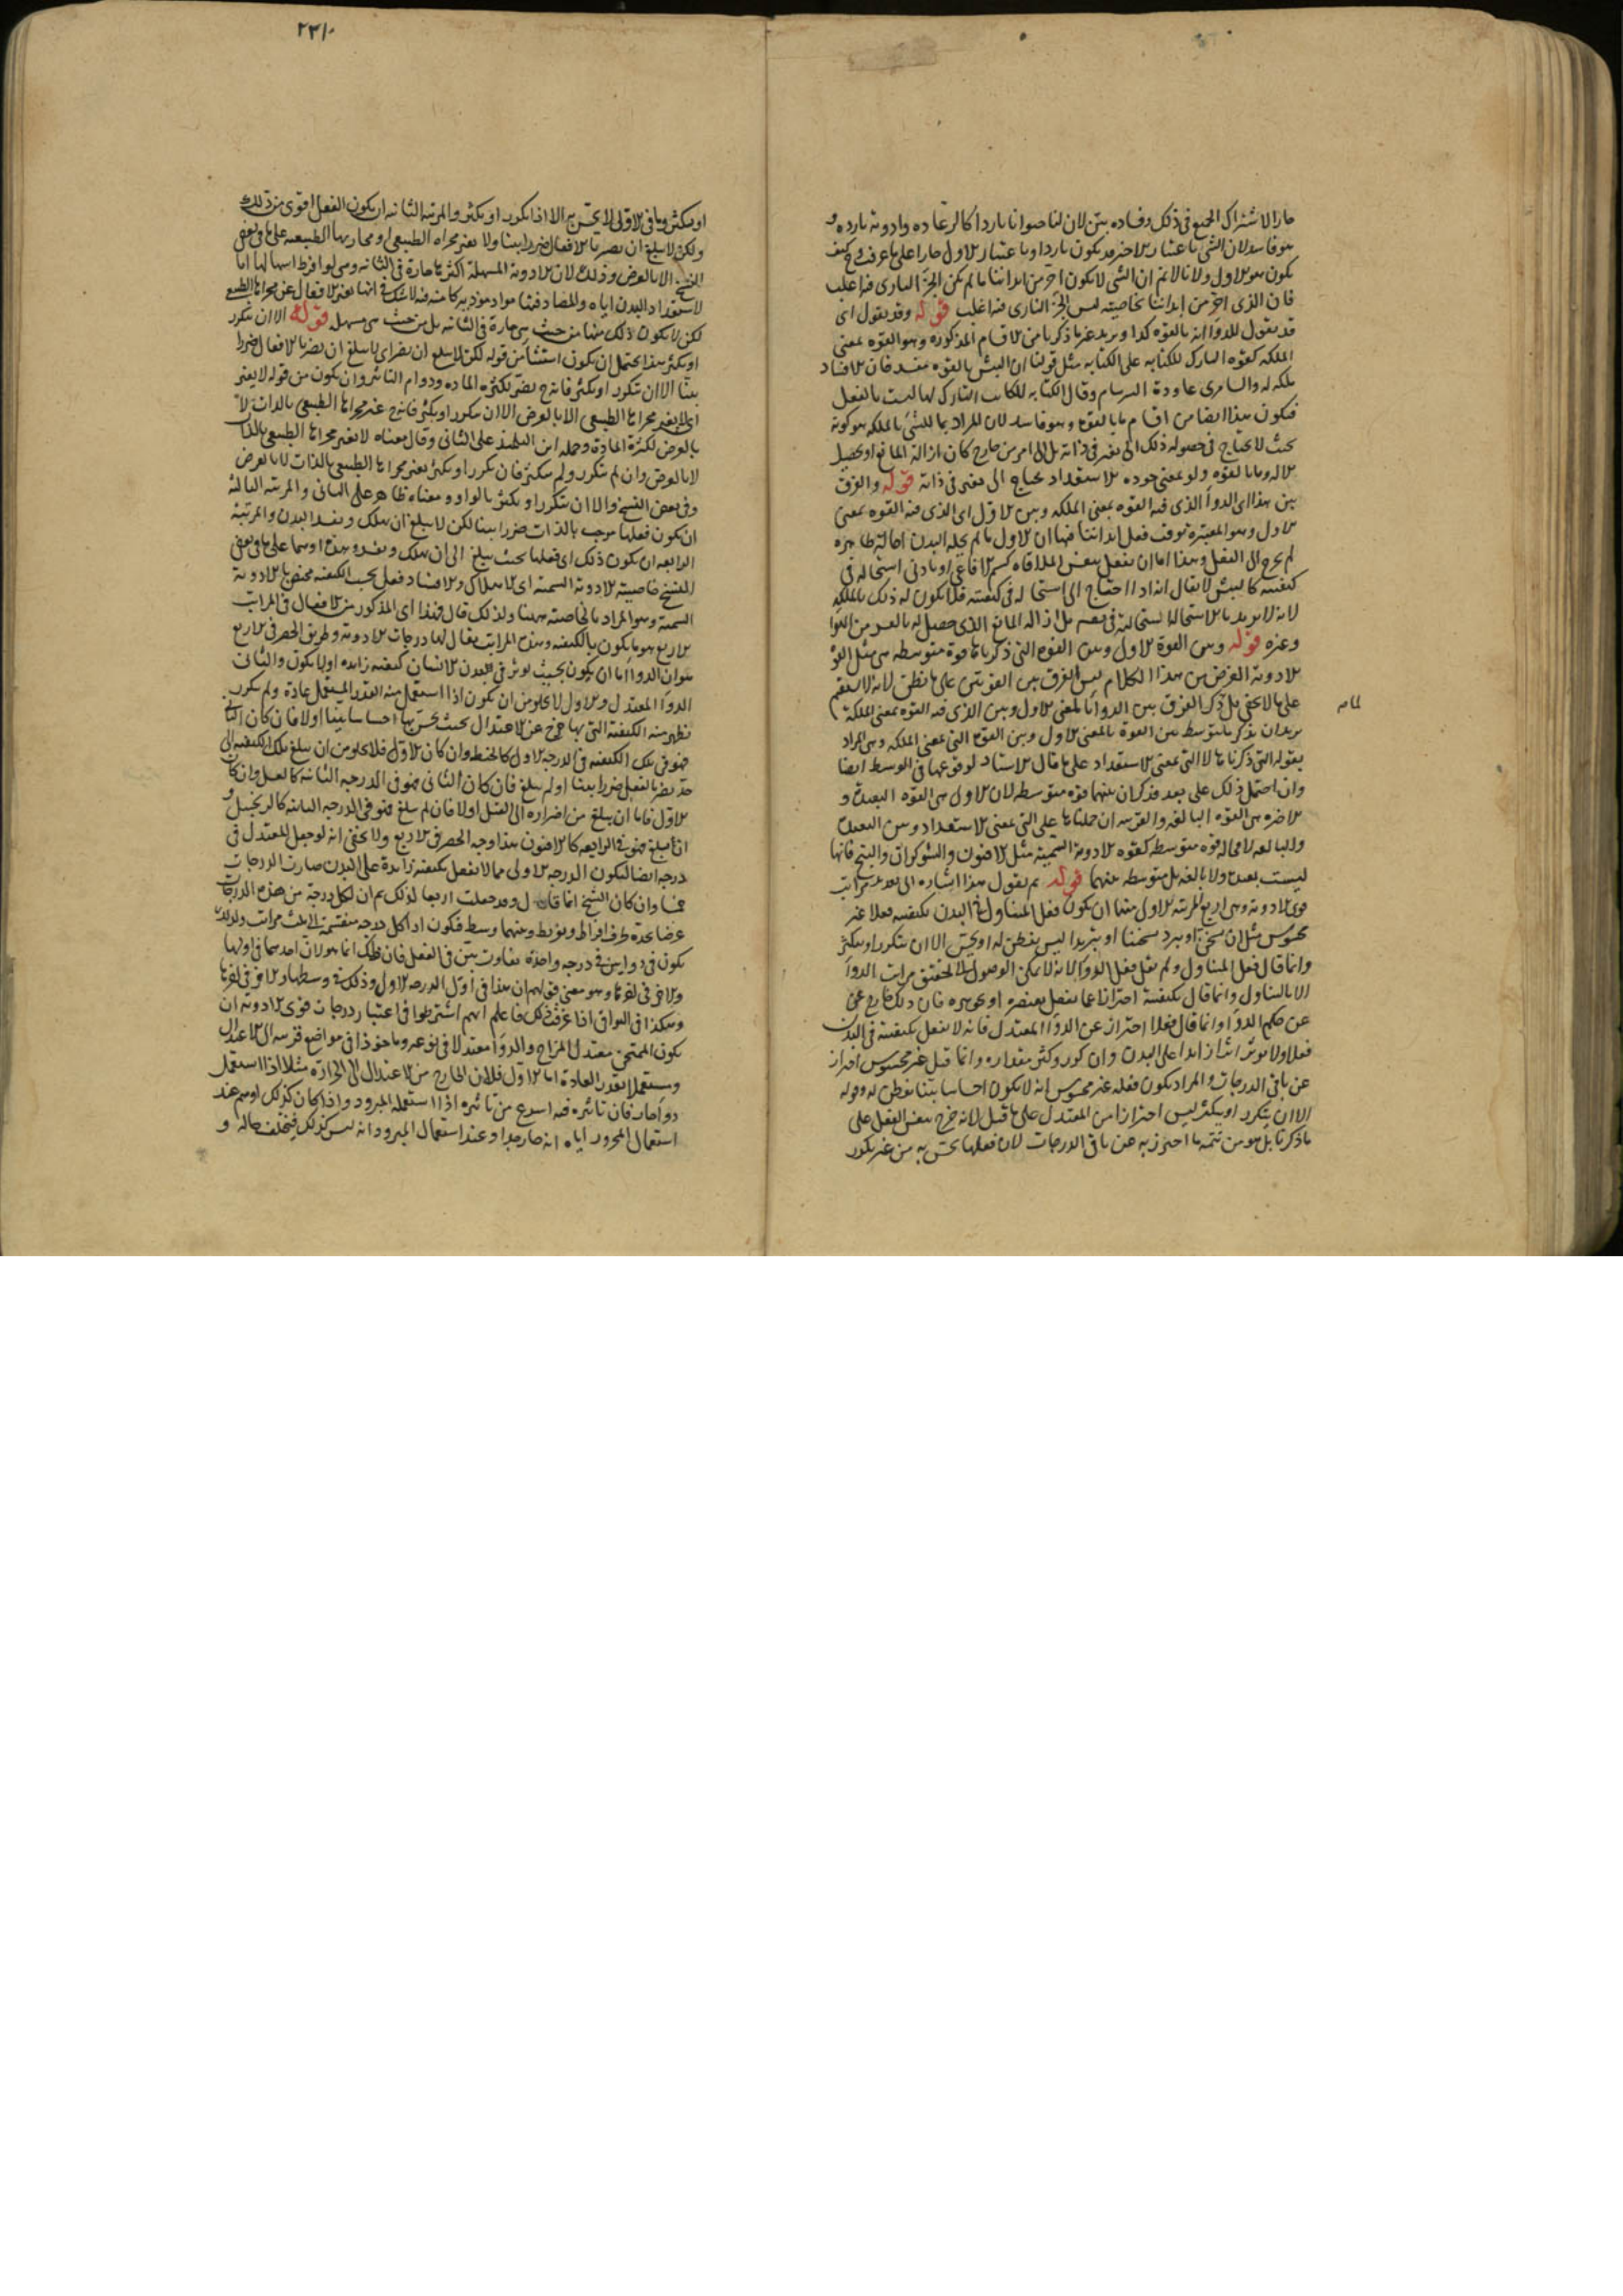 حارا لاشتراك الجميع في ذلك وفساده بين لان لنا حيوانا باردا كالرعاده وادوية بارده و
هو فاسد لان الشي باعتبار الاخر قد يكون باردا وباعتبار الاول حارا على ما عرفت وكيف
يكون هو الاول ولانا لا نم ان الشي لا يكون احر من ابداننا ما لم يكن الجزء الناري فيه اغلب
فان الذي احر من ابداننا بخاصيته ليس الجزء الناري فيه اغلب قوله وقد يقول اي
قد يقول للدواء انه بالقوه كذا ويريد غير ما ذكرنا من الاقسام المذكوره وهو القوه بمعنى
الملكه كقوه التارك للكتابه على الكتابه مثل قولنا ان البيش بالقوه مفسد فان الافساد
ملكه له وقال الكتابه للكاتب التارك لها ليست بالفعل
فيكون هذا ايضا من اقسام ما بالقوه وهو فاسد لان المراد بما للشي بالملكه هو كونه
بحيث لا يحتاج في حصوله ذلك الى تغير في ذاته بل الى امر من خارج كان ازالة المانع او تحصيل
الاله وما بالقوه ولو بمعنى جوده الاستعداد يحتاج الى تغير في ذاته قوله والفرق
بين هذا اي الدواء الذي فيه القوه بمعنى الملكه وبين الاول اي الذي فيه القوه بمعنى
الاول وهو المعتبرة توقف فعل ابداننا فيها ان الاول ما لم يحله البدن احالة ظاهره
لم يخرج الى الفعل وهذا اما ان يفعل بنفس الملاقاه كسم الافاعي او بادنى استحاله في
كيفيته كالبيش لا يقال انه اذا احتاج الى استحالة في كيفيته فلا يكون له ذلك بالملكه
وغيره قوله وبين القوة الاول وبين القوه التي ذكرناها قوة متوسطه هي مثل القو
الادوية الغرض من هذا الكلام ليس الفرق بين القوتين على ما نظن لانه لا يستقيم
على ما لا يخفى بل ذكر الفرق بين الدواء بالمعنى الاول وبين الذي فيه القوه بمعنى الملكة
يريد ان يذكر ما يتوسط بين القوة بالمعنى الاول وبين القوه التي بمعنى الملكه وهي المراد
بقوله التي ذكرناها لا التي بمعنى الاستعداد على ما قال الاستاد لوقوعها في الوسط ايضا
وان احتمل ذلك على بعد فذكر ان بينهما قوه متوسطه لان الاول هي القوه البعيدة و
الاخره هي القوه البالغه والقريبه ان حملناها على التي بمعنى الاستعداد وبين البعيدة
والبالغه لا محاله قوه متوسطه كقوه الادوية السمية مثل الافيون والشوكران والبنج فانها
ليست بعيدة ولا بالغه بل متوسطه بينهما قوله ثم يقول هذا اشاره الى تعديد مراتب
قوى الادويه وهي اربع المرتبه الاولى منها ان يكون فعل المتناول في البدن بكيفيته فعلا غير
محسوس مثل ان يسخن او يبرد تسخينا او تبريدا ليس يفطن له او يحس الا ان يتكرر او يكثر
وانما قال فعل المتناول ولم يقل فعل الدواء لانه لا يمكن الوصول الى تحقيق مراتب الدواء
الا بالتناول وانما قال بكيفيته احترازا عما يفعل بعنصره او بجوهره فان ذلك خارج
عن حكم الدواء وانما قال فعلا احتراز عن الدواء المعتدل فانه لا يفعل بكيفيته في البدن
فعلا ولا يوثر اثرا زايدا على البدن وان كرر وكثر مقداره وانما قيل غير محسوس احتراز
عن باقي الدرجات والمراد بكون فعله غير محسوس انه لا يكون احساسا بينا يفطن له وقوله
الا ان يتكرر او يكثر ليس احترازا من المعتدل على ما قيل لانه خرج بنفس الفعل على
ما ذكرنا بل هو من تتمه ما احترز به عن باقي الدرجات لان فعلها يحس به من غير تكرر
او يكثر وما في الاولى لا يحس به الا اذا تكرر او يكثر والمرتبه الثانيه ان يكون الفعل اقوى من ذلك
ولكن لا يبلغ ان يضر بالافعال ضررا بينا ولا يغير مجراه الطبيعي
النسخ الا بالعرض وذلك لان الادوية المسهلة اكثرها حارة في الثانيه
لكن لا يكون ذلك منها من حيث هي حارة في الثانيه بل من حيث هي مسهله قوله الا ان يتكرر
او يكثر هذا يحتمل ان يكون استثناء من قوله لكن لا يبلغ ان يضر اي لا يبلغ ان يضر بالافعال ضررا
بينا الا ان يتكرر او يكثر فانه ح يضر بكثره الماده ودوام التاثير وان يكون من قوله لا يغير
اي لا يغير مجراها الطبيعي الا بالعرض الا ان يتكرر او يكثر فانه ح يغير مجراها الطبيعي بالذات لا
بالعرض لكثرة المادة وحمله ابن التلميذ على الثاني وقال معناه لا يغير مجراها الطبيعي بالذات
لا بالعرض وان لم يتكرر ولم يكثر فان تكرر او يكثر يغير مجراها الطبيعي بالذات لا بالعرض
وفي بعض النسخ والا ان يتكرر او يكثر بالواو ومعناه ظاهر على الثاني والمرتبه الثالثه
ان يكون فعلها موجب بالذات ضررا بينا لكن لا يبلغ ان يهلك ويفسد البدن والمرتبة
الرابعه ان يكون ذلك اي فعلها بحيث يبلغ الى ان يهلك ويفسد
النسخ خاصية الادوية السمية اي الاهلاك والافساد فعل بحسب الكيفيه مختص بالادوية
السمية وهو المراد بالخاصية ههنا ولذلك قال فهذا اي المذكور من الافعال في المراتب
الاربع هو ما يكون بالكيفيه وهذه المراتب يقال لها درجات الادوية وطريق الحصر في الاربع
هو ان الدواء اما ان يكون بحيث يوثر في البدن الانسان كيفيه زايده او لا يكون والثاني
الدواء المعتدل والاول لا يخلو من ان يكون اذا استعمل منه القدر المستعمل عادة ولم يتكرر
يظهر منه الكيفية التي بها خرج عن الاعتدال بحيث يحس بها احساسا بينا او لا فان كان الثاني
فهو في تلك الكيفيه في الدرجه الاولى كالحنطه وان كان الاول فلا يخلو من ان يبلغ تلك الكيفيه الى
حد يضر بالفعل ضررا بينا او لم يبلغ فان كان الثاني فهو في الدرجه الثانيه كالعسل وان كان
الاول فاما ان يبلغ من اضراره الى القتل او لا فان لم يبلغ فهو في الدرجه الثالثه كالزنجبيل و
ان بلغ فهو في الرابعه كالافيون هذا وجه الحصر في الاربع ولا يخفى انه لو جعل للمعتدل في
درجه ايضا ليكون الدرجه الاولى مما لا يفعل بكيفيته زايدة على البدن صارت الدرجات
خمسا وان كان الشيخ قد جعلت اربعا لذلك ثم ان لكل درجة من هذه الدرجات
عرضا يحده طرف افراط وتفريط وبينهما وسط فيكون اذا كل درجه منقسمة الى ثلث مراتب
يكون في دوايين في درجه واحده تفاوت بين في الفعل فان ذلك انما هو لان احدهما في اولها
والاخر في اخرها وهو معنى قولهم ان هذا في اول الدرجه الاولى وذلك في وسطها والاخر في اخرها
وهكذا في البواقي اذا عرفت ذلك فاعلم انهم اشترطوا في اعتبار درجات قوى الادوية ان
يكون الممتحن معتدل المزاج والدواء معتدلا في نوعه وماخوذا في مواضع قريبه الى الاعتدال
ويستعمل بقدر العادة اما الاول فلان الخارج من الاعتدال الى الحرارة مثلا اذا استعمل
دواء حار فان تاثيره فيه اسرع من تاثيره اذا استعمله المبرود واذا كان كذلك
استعمال المحرور اياه انه حار جدا وعند استعمال المبرود انه ليس كذلك فيختلف حاله و